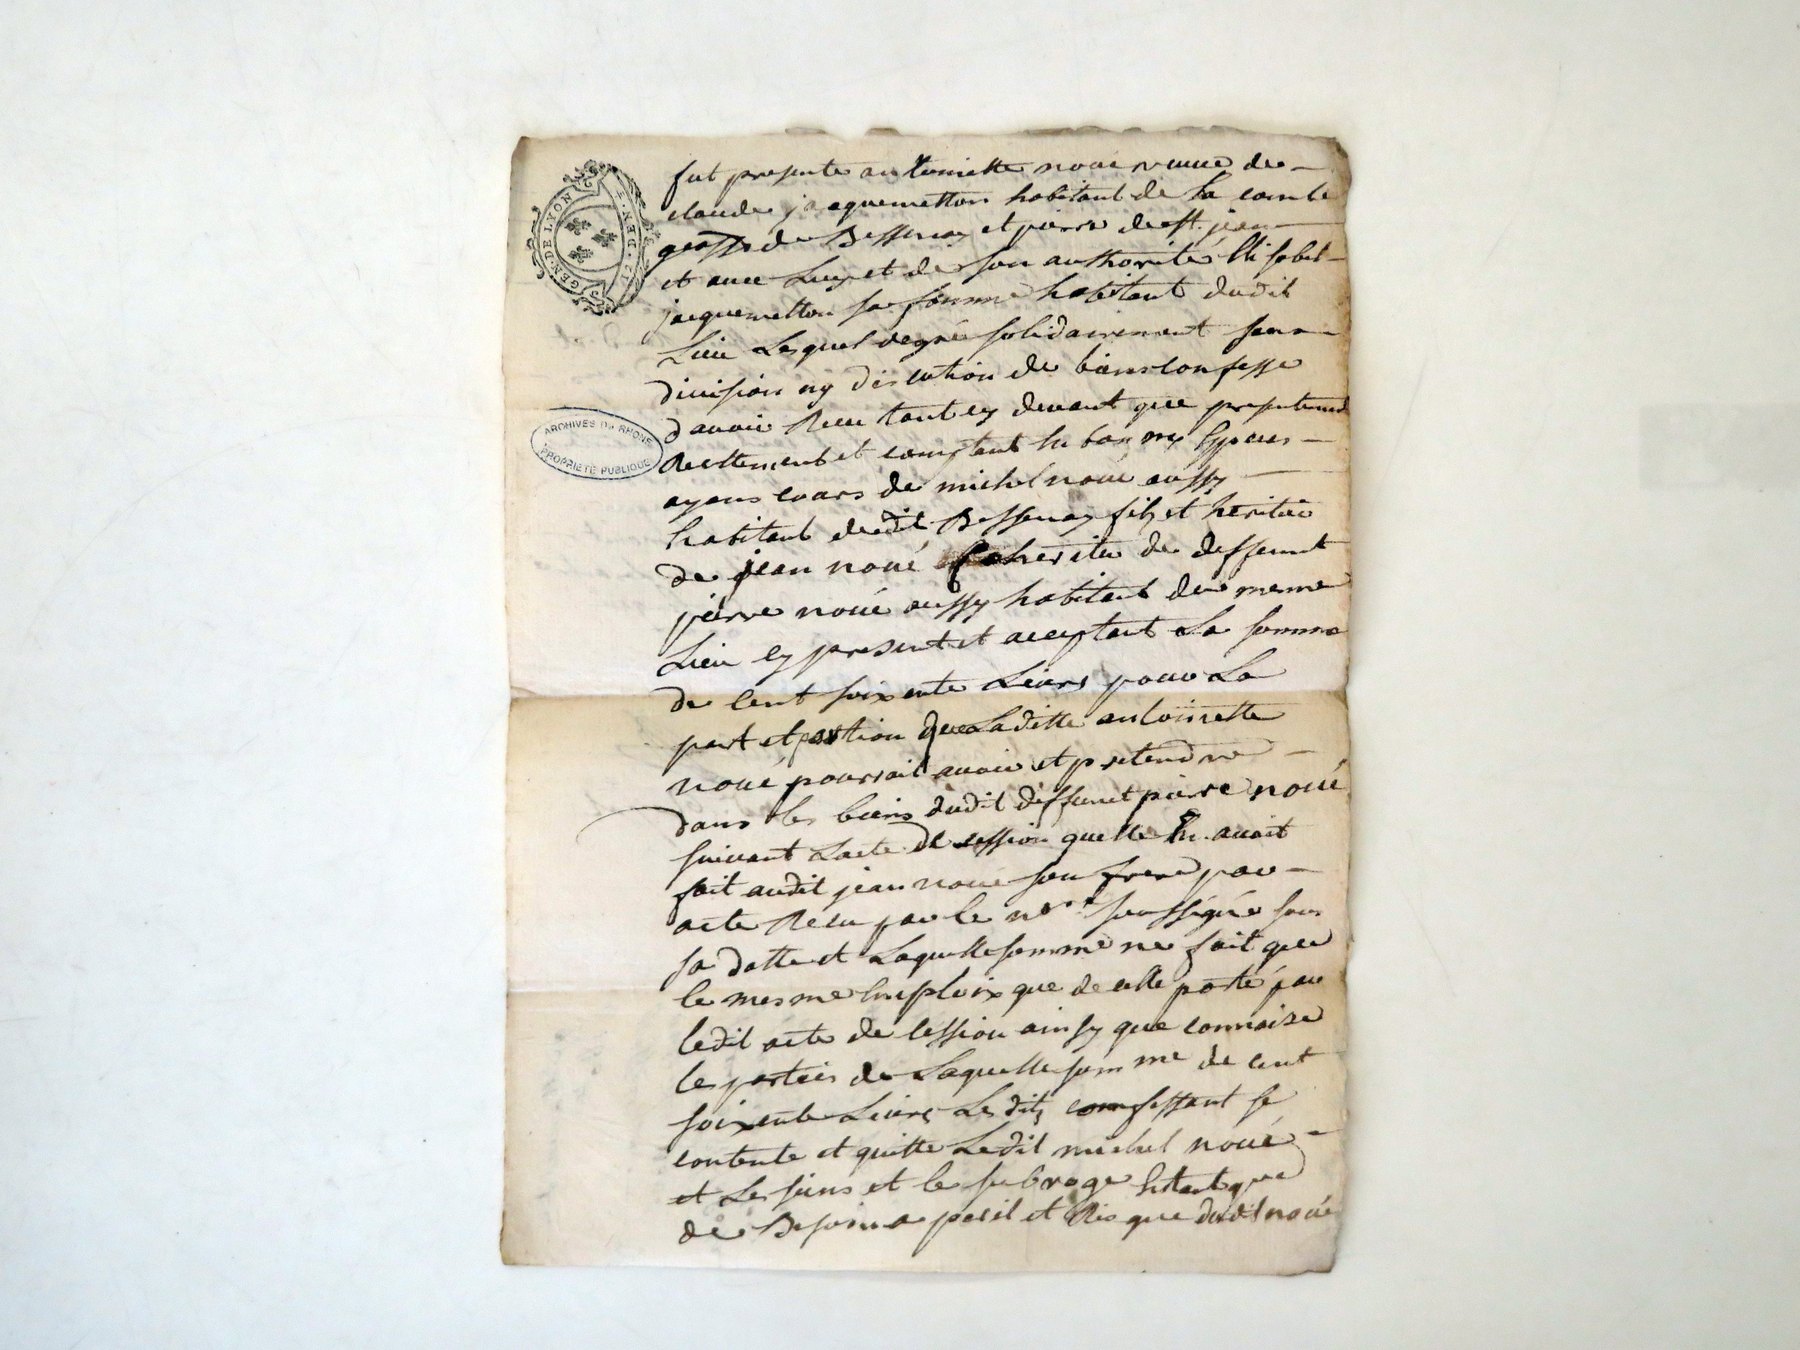 GEN·DE LYON
II·DEM·
ARCHIVES DU RHONE
PROPRIETE PUBLIQUE
fut presente antoinette noué veuve de
claude jacquemetton habitant de la combe
de Bessenay et pierre de st. jean
et avec Luy et de son authorité Elisabet
jacquemetton sa femme habitant dudit
Lieu Lesquel degré solidairement sans
division ny discution de biens confesse
davoir Receu tant cy devant que presentement
Reellement et comptant en bonnes Especes
ayens cours de michel noué aussy
habitant dudit Bessenay fils et heritier
de jean noué Coheritier de deffeunt
pierre noué aussy habitant du meme
Lieu cy present et aceptant La somme
de Cent soixente Livres pour La
part et portion que Laditte antoinette
noué pourrait avoir et pretendre
dans les biens dudit deffunct pierre noué
suivant Lacte de cession quelle En avait
fait audit jean noué son frere par
acte Receu par le nore soussigné sous
sa datte et Laquelle somme ne fait que
le mesme Emploix que de celle porté par
ledit acte de Cession ainsy que connoise
les parties de Laquelle somme de cent
soixente Livres Lesdits confessant se
contente et quitte Ledit michel noué
et Les siens et le subroge Entant que
de Besoin a peril et Risque dudit noué